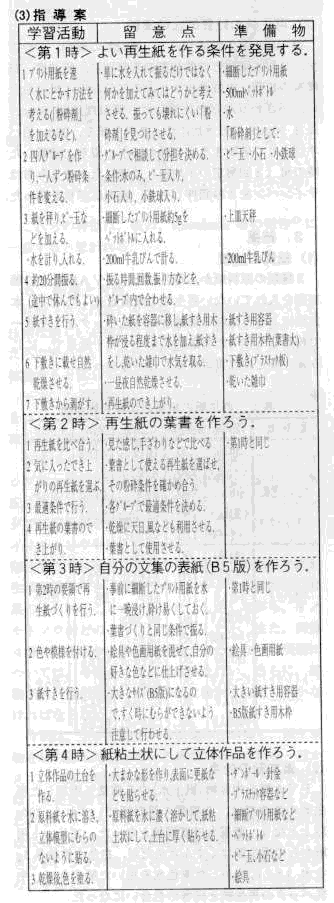 (3)指 導 案
学習活動　留 意 点　準 備 物
<第１時> よい再生紙を作る条件を発見する.
1 プリント用紙を速く水にとかす方法を考える(「粉砕剤」を加えるなど).
・単に水を入れて振るだけではなく何かを加えてみてはどうかと考えさせる. 振っても壊れにくい「粉砕剤」を見つけさせる.
・細断したプリント用紙
・500mlペットボトル
・水
「粉砕剤」として:
・ビー玉 ・小石 ・小鉄球
2 四人グループを作り,一人ずつ粉砕条件を変える.
・グループで相談して分担を決める.
・条件:水のみ, ビー玉入り, 小石入り, 小鉄球入り.
3 紙を秤り,ビー玉などを加える.
・細断したプリント用紙約5gをペットボトルに入れる.
・上皿天秤
・水を計り,入れる.
・200ml牛乳びんで計る.
・200ml牛乳びん
4 約20分間振る.(途中で休んでもよい)
・振る時間,回数,振り方などを,グループ内で合わせる.
5 紙すきを行う.
・砕いた紙を容器に移し,紙すき用木枠が浸る程度まで水を加え,紙すきをし,乾いた雑巾で水気を取る.
・紙すき用容器
・紙すき用木枠(葉書大)
・下敷き(プラスチック板)
・乾いた雑巾
6 下敷きに載せ自然乾燥させる.
・一昼夜自然乾燥させる.
7 下敷きから剥がす.
・再生紙のでき上がり.
<第２時>　再生紙の葉書を作ろう.
1 再生紙を比べ合う.
・見た感じ,手ざわりなどで比べる
・第1時と同じ
2 気に入ったでき上がりの再生紙を選ぶ.
・葉書として使える再生紙を選ばせ,その粉砕条件を確かめ合う.
3 最適条件で行う.
・各グループで最適条件を決める.
4 再生紙の葉書のでき上がり.
・乾燥に天日,風なども利用させる.
・葉書として使用させる.
<第３時> 自分の文集の表紙(B５版)を作ろう.
1 第2時の要領で再生紙づくりを行う.
・事前に細断したプリント用紙を水に一晩浸け,砕け易くしておく.
・葉書づくりと同じ条件で振る.
・第1時と同じ
2 色や模様を付ける.
・絵具や色画用紙を混ぜて,自分の好きな色などに仕上げさせる.
・絵具 ・色画用紙
3 紙すきを行う.
・大きなサイズ(B5版)になるので,すく時にむらができないよう注意して行わせる.
・大きい紙すき用容器
・B5版紙すき用木枠
<第４時> 紙粘土状にして立体作品を作ろう.
1 立体作品の土台を作る.
・大まかな形を作り,表面に更紙などを貼らせる.
・ダンボール ・針金
・プラスチック容器など
2 原料紙を水に溶き,立体模型にむらのないように貼る.
・原料紙を水に濃く溶かして,紙粘土状にして,土台に厚く貼らせる.
・細断プリント用紙など
・ペットボトル
・ビー玉,小石など
3 乾燥後,色を塗る.
・絵具